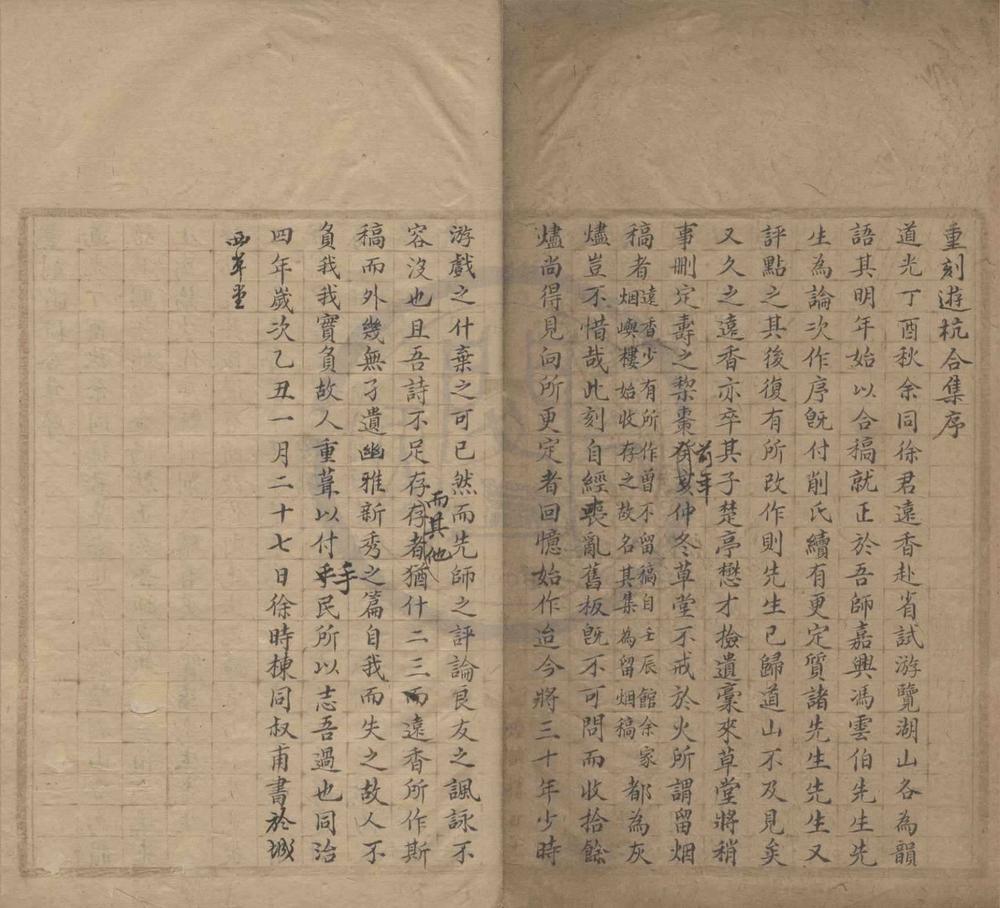 重刻遊杭合集序
道光丁酉秋余同徐君遠香赴省試游覽湖山各為韻
語其明年始以合稿就正於吾師嘉興馮雲伯先生先
生為論次作序旣付削氏續有更定質諸先生先生又
評點之其後復有所改作則先生已歸道山不及見矣
又久之遠香亦卒其子楚亭懋才檢遺稾來草堂將稍
事刪定壽之棃棗前年癸亥仲冬草堂不戒於火所謂留烟
稿者遠香少有所作曾不留稿自壬辰館余家烟嶼樓始收存之故名其集為留烟稿都為灰
燼豈不惜哉此刻自經喪亂舊板旣不可問而收拾餘
燼尚得見向所更定者回憶始作迨今將三十年少時
游戲之什棄之可已然而先師之評論良友之諷詠不
容沒也且吾詩不足存而其他存者猶什二三而遠香所作斯
稿而外幾無孑遺幽雅新秀之篇自我而失之故人不
負我我實負故人重葺以付手民所以志吾過也同治
四年歲次乙丑一月二十七日徐時棟同叔甫書於城
西草堂